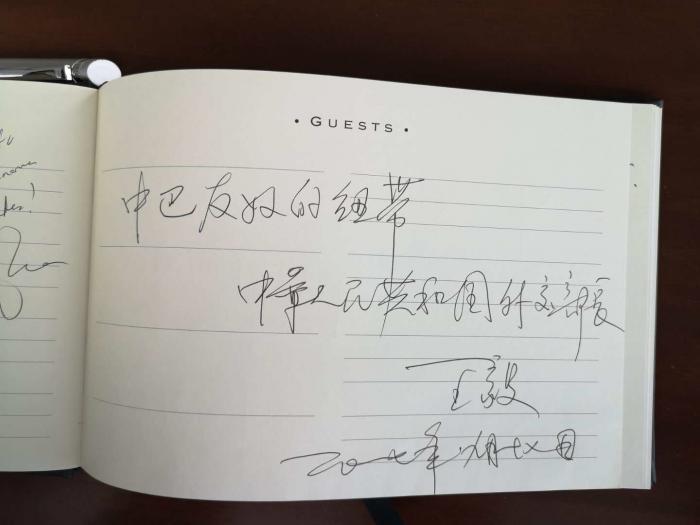 • GUESTS •
中巴友好的纽带
中华人民共和国外交部长
王毅
二〇一七年九月十七日